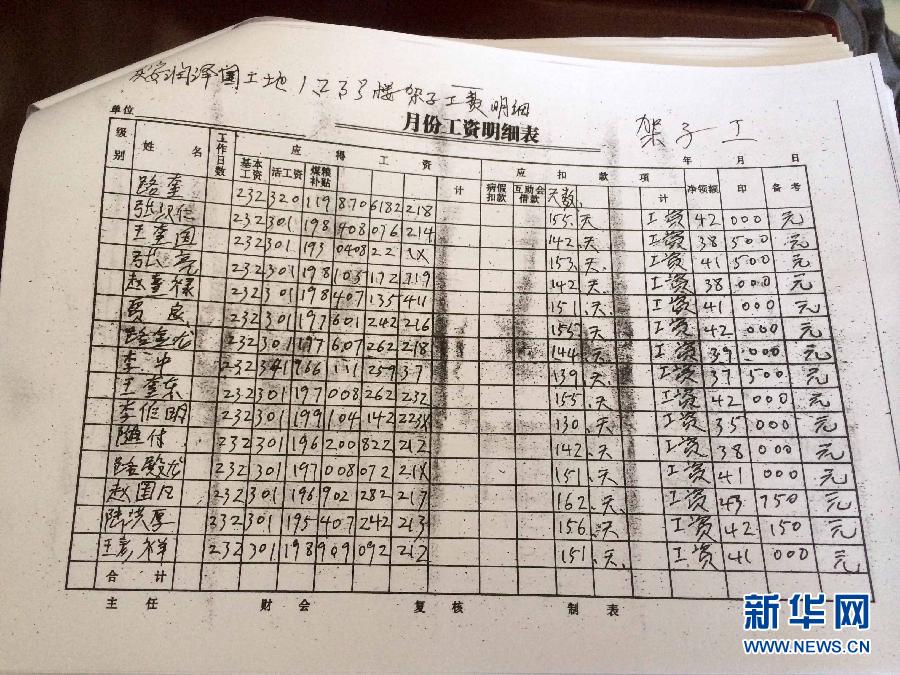 润泽园工地1 2 3 号楼架子工资明细
单位 月份工资明细表 架子工
年 月 日
级别 姓名 工作日数 应得工资 应扣款项 净领额 印 备考
基本工资 活工资 煤粮补贴 计 病假扣款 互助会借款 天数 计
路奎 232 320 119 870 618 2218 155.天 工资 42 000 元
232 301 198 408 076 214 142.天 工资 38 500 元
王奎国 232 301 193 153.天 工资 41 500 元
张亮 232 301 198 142.天 工资 38 000 元
232 301 198 407 135 411 151.天 工资 41 000 元
夏良 232 301 197 601 242 216 155.天 工资 42 000 元
路奎龙 232 301 197 607 262 218 144.天 工资 39 000 元
李中 232 139.天 工资 37 500 元
王奎东 232 301 197 008 262 232 155.天 工资 42 000 元
232 301 199 104 142 130.天 工资 35 000 元
232 301 196 200 822 212 142.天 工资 38 000 元
路殿龙 232 301 197 008 072 21X 151.天 工资 41 000 元
赵国凡 232 301 196 902 282 217 162.天 工资 43 750 元
陆洪厚 232 301 195 407 242 213 156.天 工资 42 150 元
王彦祥 232 301 198 909 092 212 151.天 工资 41 000 元
合计
主任 财会 复核 制表
新华网
WWW.NEWS.CN